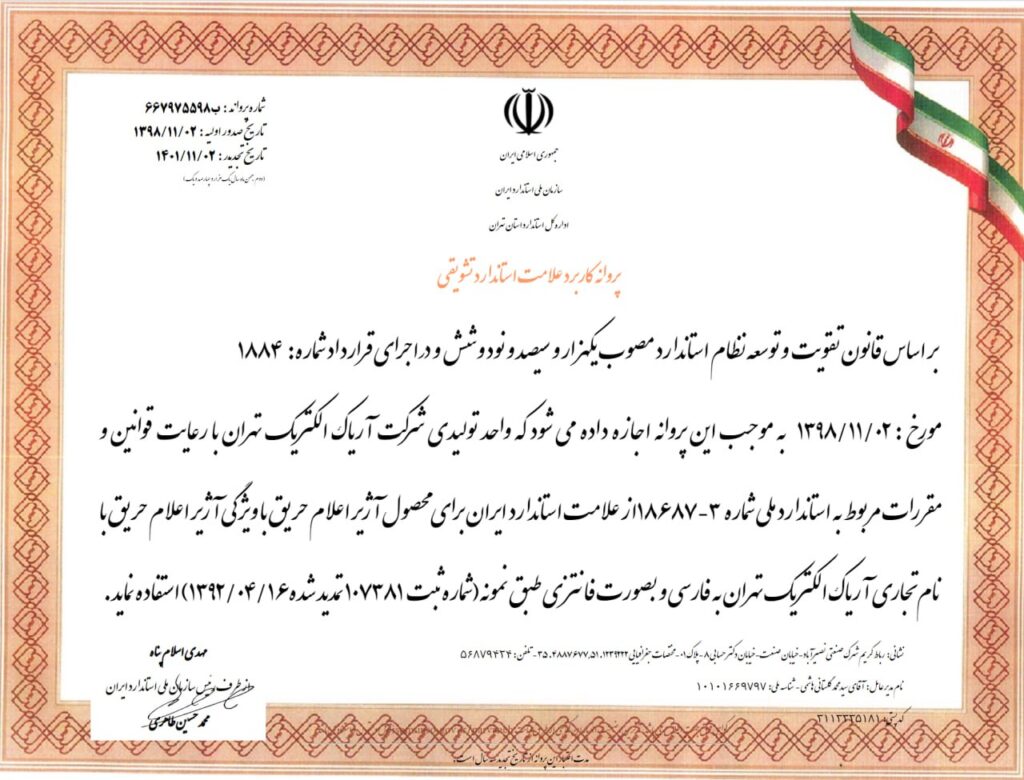 شماره پروانه : ب۶۶۷۹۷۵۵۹۸
تاریخ صدور اولیه : ۱۳۹۸/۱۱/۰۲
تاریخ تجدید : ۱۴۰۱/۱۱/۰۲
جمهوری اسلامی ایران
سازمان ملی استاندارد ایران
اداره کل استاندارد استان تهران
پروانه کاربرد علامت استاندارد تشویقی
بر اساس قانون تقویت و توسعه نظام استاندارد مصوب یکهزار و سیصد و نود و شش و در اجرای قرارداد شماره: ۱۸۸۴
مورخ : ۱۳۹۸/۱۱/۰۲ به موجب این پروانه اجازه داده می شود که واحد تولیدی شرکت آریاک الکتریک تهران با رعایت قوانین و
مقررات مربوط به استاندارد ملی شماره ۳-۱۸۶۸۷از علامت استاندارد ایران برای محصول آژیر اعلام حریق باویژگی آژیر اعلام حریق با
نام تجاری آریاک الکتریک تهران به فارسی و بصورت فانتزی طبق نمونه (شماره ثبت ۱۰۷۳۸۱ تمدید شده ۱۳۹۲/۰۴/۱۶) استفاده نماید.
نشانی: رباط کریم شهرک صنعتی نصیرآباد- خیابان صنعت- خیابان دکتر حسابی ۸- پلاک ۰۱- مختصات جغرافیایی ۳۵.۴۸۸۷۶۷۷,۵۱.۱۲۳۹۲۲۲ - تلفن: ۵۶۸۷۹۴۳۴
نام مدیرعامل: آقای سید محمد گلستانی هاشمی - شناسه ملی: ۱۰۱۰۱۶۶۹۷۹۷
کد پستی: ۳۱۱۳۳۳۵۱۸۱
مهدی اسلام پناه
از طرف رئیس سازمان ملی استاندارد ایران
محمد حسین طاهری
مدت اعتبار این پروانه از تاریخ تجدید سه سال است.